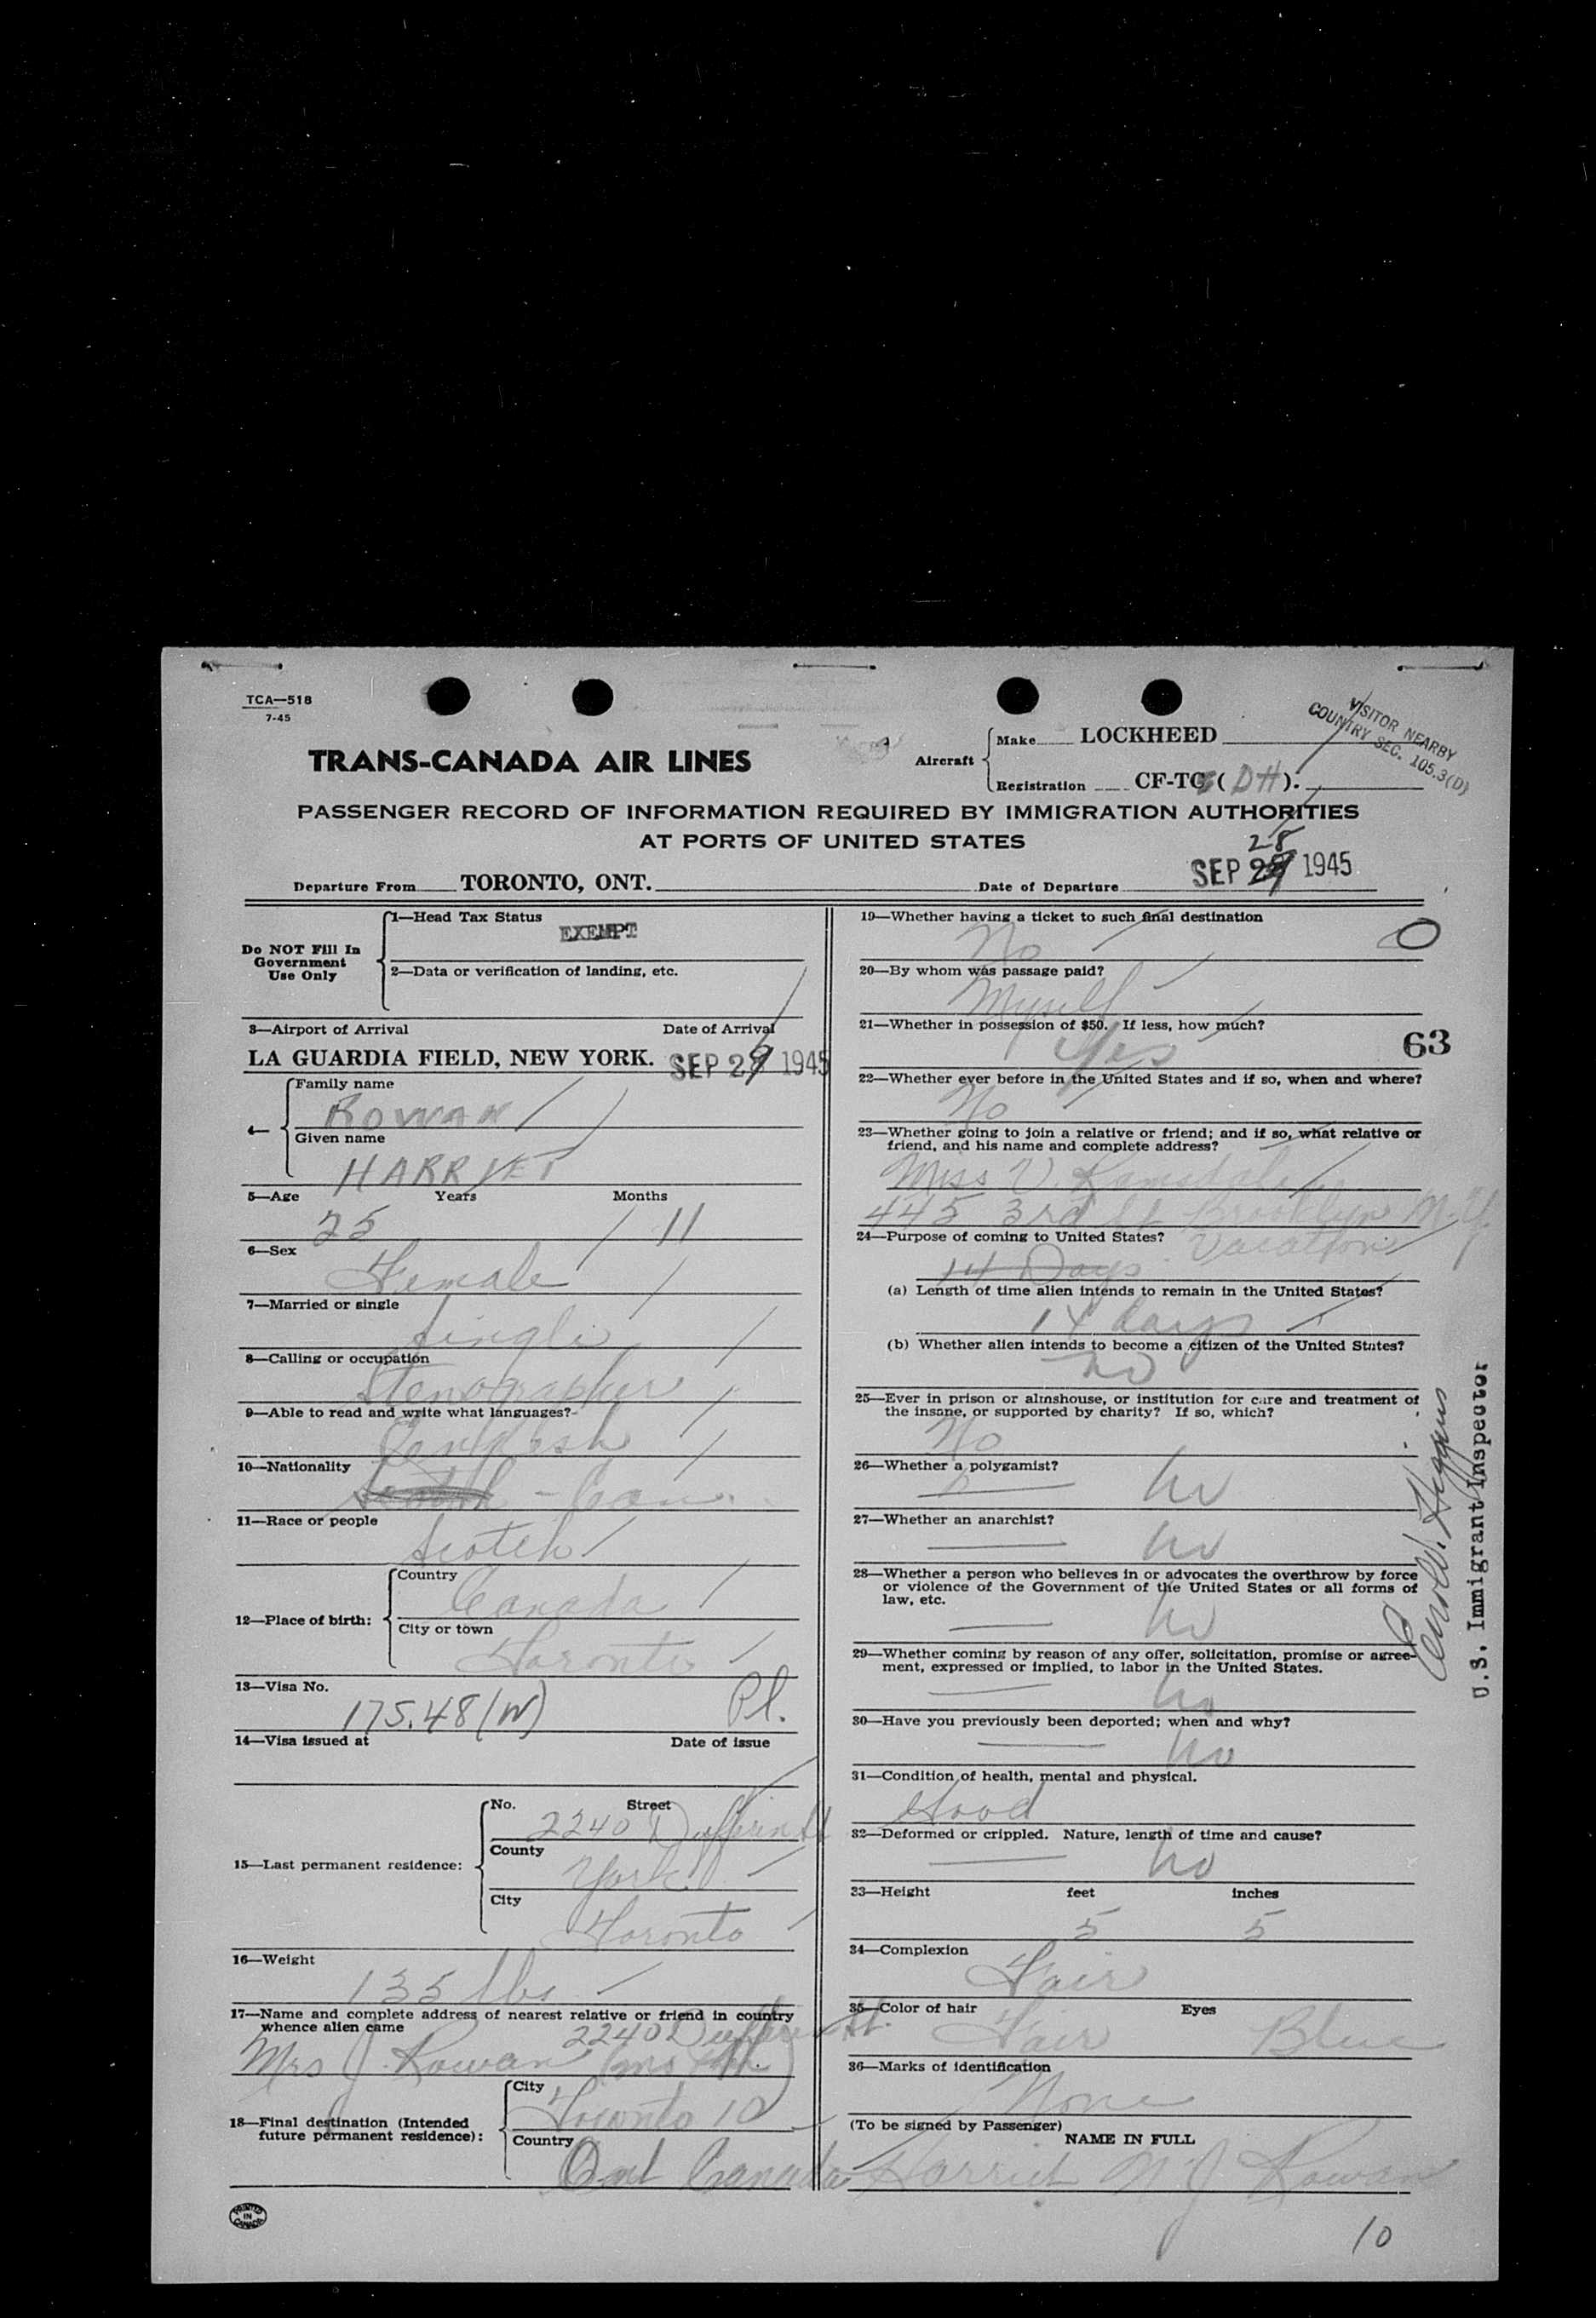 TCA—518
7-45
VISITOR NEARBY
COUNTRY SEC. 105.3(D)
TRANS-CANADA AIR LINES
Aircraft
Make LOCKHEED
Registration CF-TC (DH).
PASSENGER RECORD OF INFORMATION REQUIRED BY IMMIGRATION AUTHORITIES
AT PORTS OF UNITED STATES
28
Departure From TORONTO, ONT. Date of Departure SEP 1945
Do NOT Fill In
Government
Use Only
1—Head Tax Status
EXEMPT
2—Data or verification of landing, etc.
3—Airport of Arrival Date of Arrival
LA GUARDIA FIELD, NEW YORK. SEP 1945
4—
Family name
ROWAN
Given name
HARRIET
5—Age Years Months
25 11
6—Sex
Female
7—Married or single
Single
8—Calling or occupation
Stenographer
9—Able to read and write what languages?
English
10—Nationality
- Can.
11—Race or people
Scotch
12—Place of birth:
Country
Canada
City or town
Toronto
13—Visa No.
175.48(W) Pl.
14—Visa issued at Date of issue
15—Last permanent residence:
No. Street
2240 Dufferin St
County
York
City
Toronto
16—Weight
135 lbs
17—Name and complete address of nearest relative or friend in country
whence alien came
2240 Dufferin St.
Mrs J. Rowan
18—Final destination (Intended
future permanent residence):
City
Toronto 10
Country
Ont Canada
PRINTED
IN
CANADA
19—Whether having a ticket to such final destination
No
0
20—By whom was passage paid?
Myself
21—Whether in possession of $50. If less, how much?
Yes
63
22—Whether ever before in the United States and if so, when and where?
No
23—Whether going to join a relative or friend; and if so, what relative or
friend, and his name and complete address?
Miss V. Ramsdale
445 3rd St Brooklyn N.Y.
24—Purpose of coming to United States? Vacation
14 Days
(a) Length of time alien intends to remain in the United States?
14 days
(b) Whether alien intends to become a citizen of the United States?
no
25—Ever in prison or almshouse, or institution for care and treatment of
the insane, or supported by charity? If so, which?
No
26—Whether a polygamist?
no
27—Whether an anarchist?
no
28—Whether a person who believes in or advocates the overthrow by force
or violence of the Government of the United States or all forms of
law, etc.
no
29—Whether coming by reason of any offer, solicitation, promise or agree-
ment, expressed or implied, to labor in the United States.
no
30—Have you previously been deported; when and why?
no
31—Condition of health, mental and physical.
Good
32—Deformed or crippled. Nature, length of time and cause?
no
33—Height feet inches
5 5
34—Complexion
Fair
35—Color of hair Eyes
Fair Blue
36—Marks of identification
None
(To be signed by Passenger)
NAME IN FULL
Harriet N J Rowan
10
Higgins
U.S. Immigrant Inspector